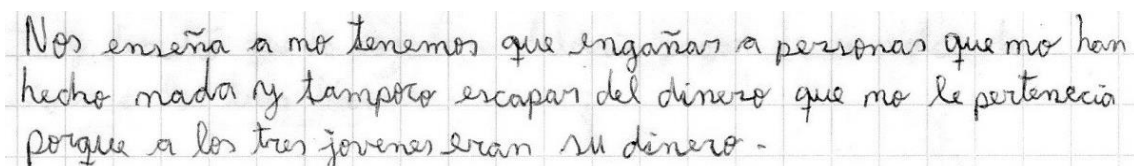 Nos enseña a no tenemos que engañar a personas que no han
hecho nada y tampoco escapar del dinero que no le pertenecia
porque a los tres jovenes eran su dinero.